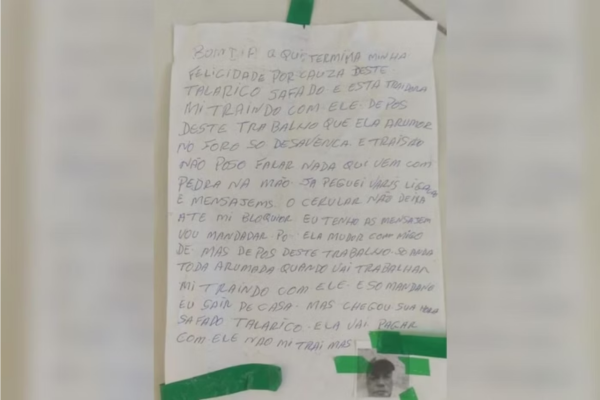 BOM DIA A QUI TERMIMA MINHA
FELICIDADE POR CAUZA DESTE
TALARICO SAFADO E ESTA
MI TRAINDO COM ELE DEPOS
DESTE TRABALHO QUE ELA ARUMOR
NO FORO SO DESAVENCA E TRAISÃO
NÃO POSO FALAR NADA QUI VEM COM
PEDRA NA MÃO JA PEGUEI
E MENSAJEMS. O CERULAR NÃO DEIXA
ATE MI BLOQUIOR EU TENHO AS MENSAJEM
VOU MANDADAR. PO. ELA MUDOR COM MIGO
DE. MAS DEPOS DESTE TRABALHO SO
TODA ARUMADA QUANDO VAI TRABALHAR
MI TRAINDO COM ELE. E SO MANDANO
EU SAIR DE CASA. MAS CHEGOU SUA HORA
SAFADO TALARICO. ELA VAI PAGAR
COM ELE NÃO MI TRAI MAS